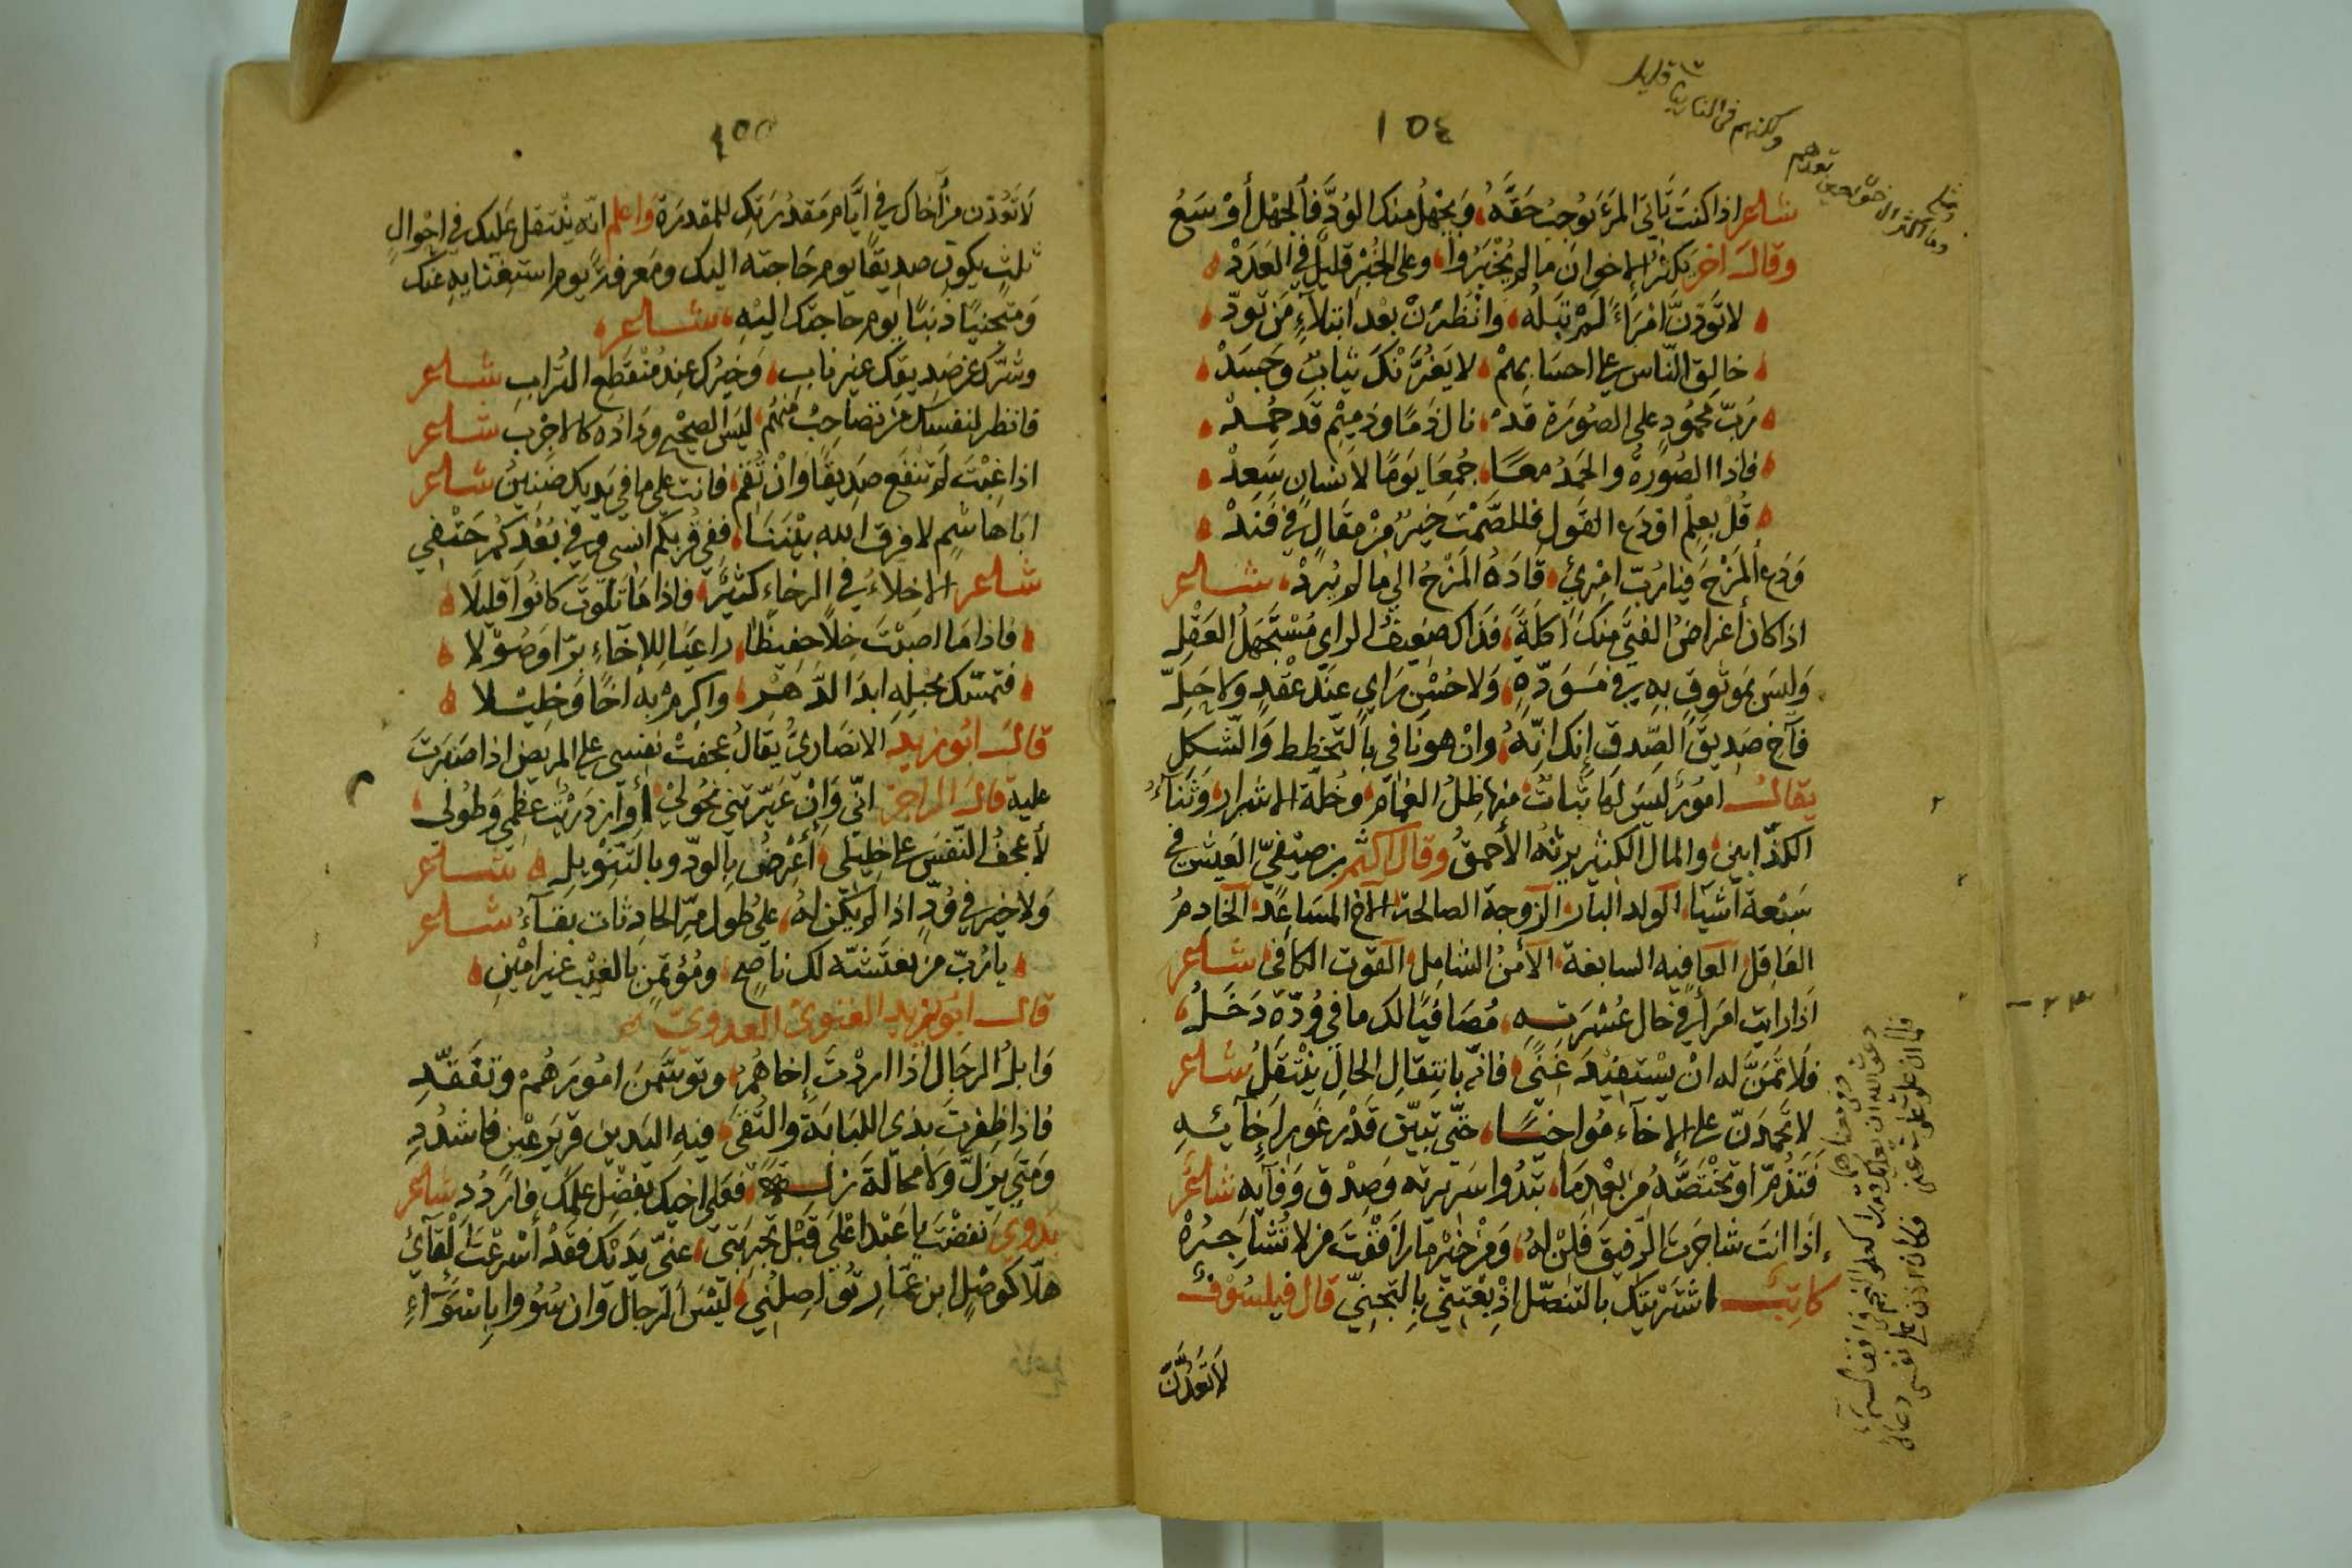 ١٥٤
شاعر اذا كنت تأتي المرَء توجبُ حَقّهُ، ويجهلُ منك الودَّ فألجهْل أوْسَعُ
وقال اخر يكثرُ الاخوان ما لم يُخْبَرُوا، وعلى الخُبْرِ قليلٌ في العَدَدْ
لا تَوَدّنَّ امْرَاءً لم تبلُه، وانظُرَنْ بعْد ابتلآءٍ مَن تودّ
خالِقِ النّاس على احسابهمْ، لا يغُرَّنْكَ ثيابٌ وجَسَدْ
رُبّ محمُودٍ على الصُورة قدْ، نال ذمًا وذميمٍ قد حُمِدْ
فاذا الصُورةُ والحَمدُ معًا، جُمِعَا يَومًا لانسانٍ سَعِدْ
قُلْ بعِلْمٍ اوْ دَع القول فالصَّمْتُ خيرٌ مِنْ مقالٍ في فَنَدْ
وَدَع ألمَزْحَ فيا رُبّ امْرِئٍ، قَادَهُ المَزْحُ الى ما لم يُرِدْ، شاعر
اذا كان أغراضُ الفتَى منك اكلَةً، فذاك ضعيفُ الراي مُسْتَجهَلُ العَقْلِ
وَليسَ بموثوقٍ بهِ في مَوَدّةٍ، وَلا حُسْنِ رَايٍ عنْد عقْدٍ ولا حَلِّ
فآخِ صَديقَ الصِّدقِ إنك انّهُ، وانْ هو نافي بالتّخطط والشّكلِ
يقال امُورٌ ليسَ لها ثباتٌ منها ظِلُّ الغمام، وخُلّة الاشرار، وثنآءُ
الكذّابين، والمال الكثير يرثه الأحمقُ وقال اكثم بن صيْفيّ العَيش في
سَبْعة أشيآء، الولد البار، الزوجة الصالحة، الاخ المسَاعِد، الخادِمُ
العَاقِل، العَافيه السابغة، الأمنُ الشامِل، القوت الكافى شاعر
اذا رايت امرأ في حَال عُسْرَتِهِ، مُصَافيًا لك ما في وُدّه دَخَلُ،
فلا تَمَنَّ له انْ يسْتفيْدَ غِنًى، فانّه بانتِقالِ الحالِ ينْتقلُ شاعر
لا تحمدَنّ على الاخآء مُواخيًا، حتّى تبيّن قَدْر غَور اخآئِهِ
فَتذُمَّ او تختَصَّهُ مِن بعْد مَا، تبْدُوا سَريرته وَصِدْق وَفَآيهِ شاعر
إذَا انتَ شاجَرتَ الرّفيقَ فَلِنْ لهُ، وَمِنْ خيْر ما رافَقْتَ من لا تُشاجِرُهْ
كاتِبٌ اشتَرْيتك بالتنصّل اذِ بعْتنِى بالتجنّيّ قال فيلسُوْفٌ
لا تعُدَّنَّ
١٥٥
لا تَعُدّن من أخاك في ايَّام مَقدُرَتك للمقدرَة وَاعلم انّه ينْتقل عَليك في احْوالٍ
ثلثٍ يكون صديقًا يوم حَاجته اليك ومَعرفةً يوم استغنايه عنك
وَمتجنيًا ذنبًا يوم حاجتك اليْهِ، شاعر،
وشرّك عن صَديقك غير نابٍ، وَخيرُك عند مُنْقَطِع التُراب شاعر
فانظر لنفسك من تصَاحِبْ منهُم، ليسَ الصحيْح ودَاده كالاجْربِ شاعر
اذا غِبْتَ لم تنْفع صديقًا وَانْ تُقِم، فانت على ما في يديك ضنينُ شاعر
ابَا هاشم لا فرق الله بيْننَا، ففي قُربكم انسى وفي بُعْدِكم حَتْفي
شاعر الاخلاءُ في الرخاء كثيْرٌ، فاذا مَا بَلَوتَ كانُوا قليلًا
فاذا مَا اصبْتَ خِلًا حفيظًا، راعيًا للإخآءِ برّا وَصُوْلا
فتمسّك بحبْلِهِ ابدَا الدَّهْر، واكرمْ به اخًا وَخليْلا
قال ابُو زيد الانصَاريّ يقالُ عجفتْ نفسى على المريض اذا صَبَرتَ
عليه قال الراجز انّى وَانْ عَيّرتنى نحُولِىْ، أوازدَرَيْتَ عظْمي وَطُولى،
لأعجفُ النّفسَ على خليْلى، أعْرضُ بالودّ وبالتّنْويلِ شاعر
وَلا خير في وُدٍّ اذا لم يكن لهُ، على طُول مرّ الحادثات بقآءُ شاعر
يا رُبّ من تغتَشّه لك ناصحٍ، ومُؤتَمنٍ بالغيْب غير امْين
قال ابُو يزيد الغنوى العدوى
وَابلُ الرجَال اذا اردْتَ إخاهُمْ، وتوسَّمنَ امُورَهُمْ وتفَقّدِ
فاذا ظفِرتَ بذى اللبَابة والتُقى، فبِهِ اليَدين قرير عيْن فاشْدُدِ
وَمَتى يزلّ ولا محالة زلةً، فعَلى اخيك بفضْل حِلمك فارْدُد شاعر
بدوى نفضْتَ يا عبْد اعْلى قبْل تجربَتى، عنّى يدَيْك فقدْ أسْرعْتَ ألْقآئي
هلّا كوَصْل ابن عمّارٍ تُواصِلُنى، ليْسَ الرّجال وَان سُوُوا باسْوَآءِ